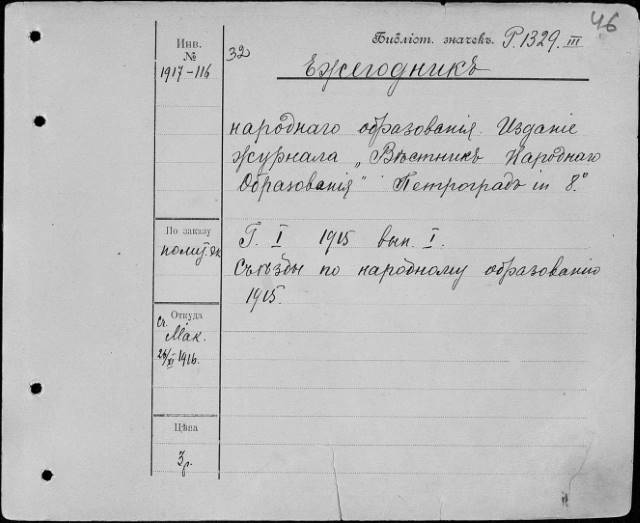 46
Библіот. значекъ. P.1329.III
Инв.
№
32
1917-116
Ежегодникъ
народнаго образованія. Изданіе
журнала „Вѣстникъ Народнаго
Образованія" Петроградъ in 8.°
По заказу
Г. I 1915 вып. I.
Съѣзды по народному образованію
1915.
Откуда
Мак.
26/XI 1916.
Цѣна
3 р.